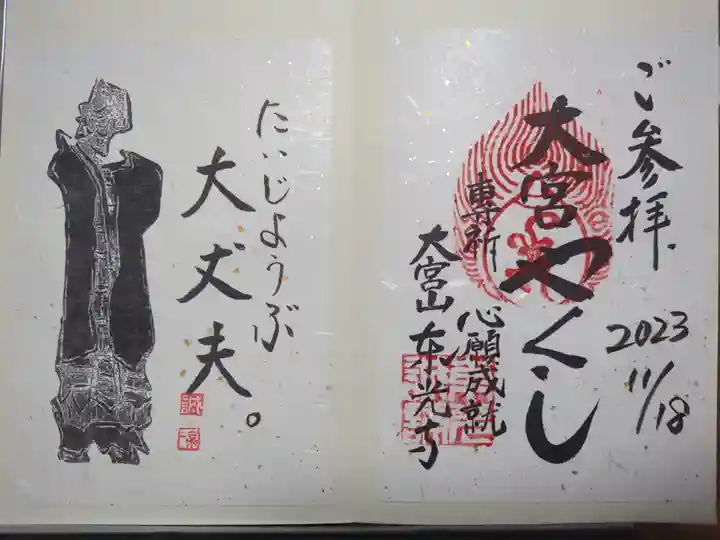 ご参拝
2023
11/18
大宮やくし
専祈
心願成就
大宮山东光寺
たいじょうぶ
大丈夫。
誠